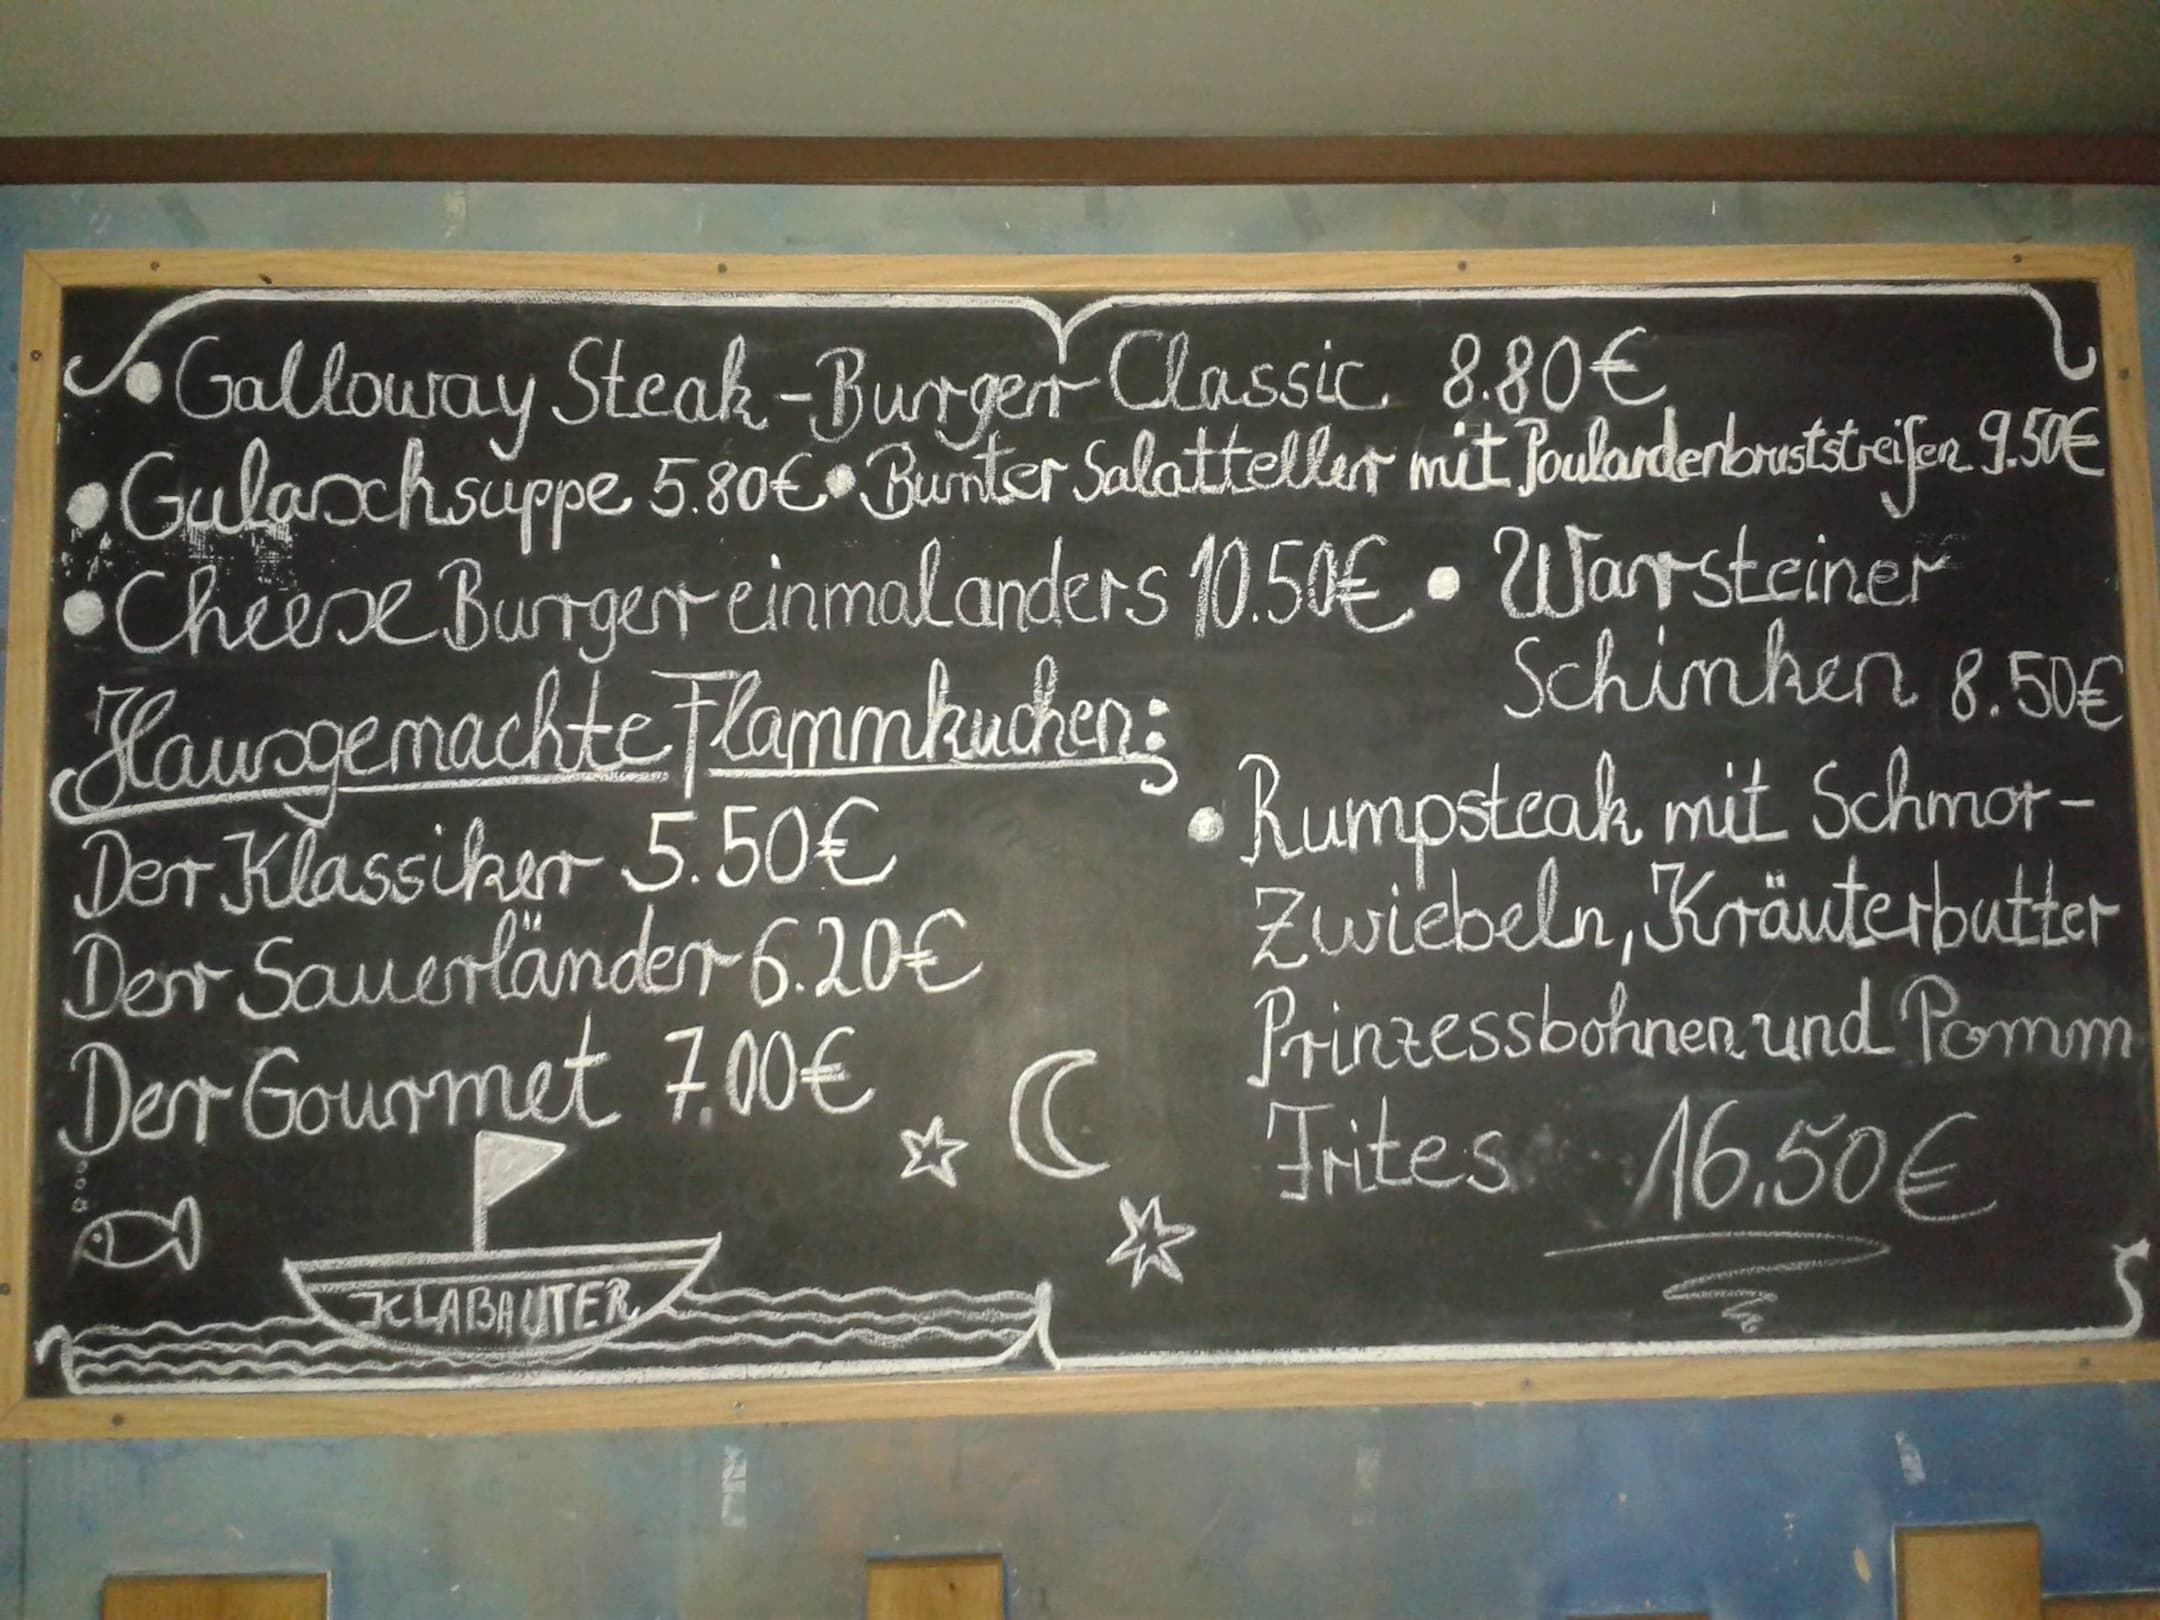 • Galloway Steak-Burger Classic 8.80€
• Gulaschsuppe 5.80€ • Bunter Salatteller mit Poulardenbruststreifen 9.50€
• Cheese Burger einmal anders 10.50€ • Warsteiner
Schinken 8.50€
Hausgemachte Flammkuchen:
Der Klassiker 5.50€
Der Sauerländer 6.20€
Der Gourmet 7.00€
• Rumpsteak mit Schmor-
Zwiebeln, Kräuterbutter
Prinzessbohnen und Pomm
Frites 16.50€
KLABAUTER